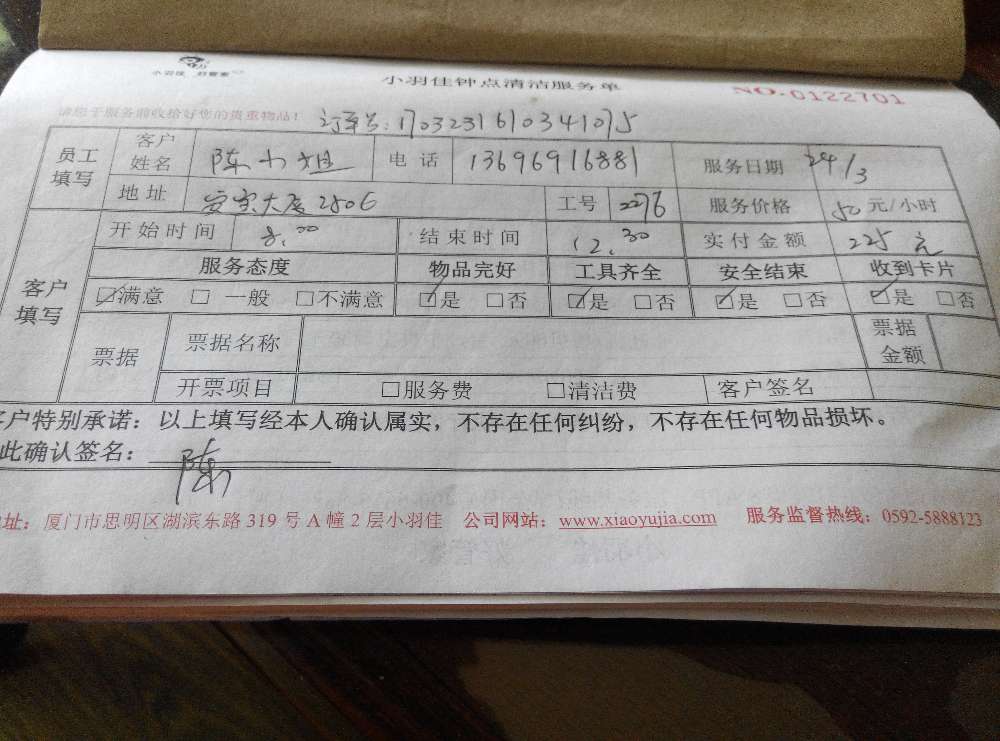 小羽佳 好管家
小羽佳钟点清洁服务单
NO.0122701
请您于服务前收拾好您的贵重物品！ 订单号：1703231610341075
员工填写 客户姓名 陈小姐 电话 13696916881 服务日期 24/3
地址 宝大厦2506 工号 2276 服务价格 50元/小时
开始时间 8:00 结束时间 12:30 实付金额 225元
服务态度 物品完好 工具齐全 安全结束 收到卡片
客户填写 ☑满意 □一般 □不满意 ☑是 □否 ☑是 □否 ☑是 □否 ☑是 □否
票据 票据名称 票据金额
开票项目 □服务费 □清洁费 客户签名
客户特别承诺：以上填写经本人确认属实，不存在任何纠纷，不存在任何物品损坏。
此确认签名：陈
址：厦门市思明区湖滨东路 319 号 A 幢 2 层小羽佳 公司网站：www.xiaoyujia.com 服务监督热线：0592-5888123